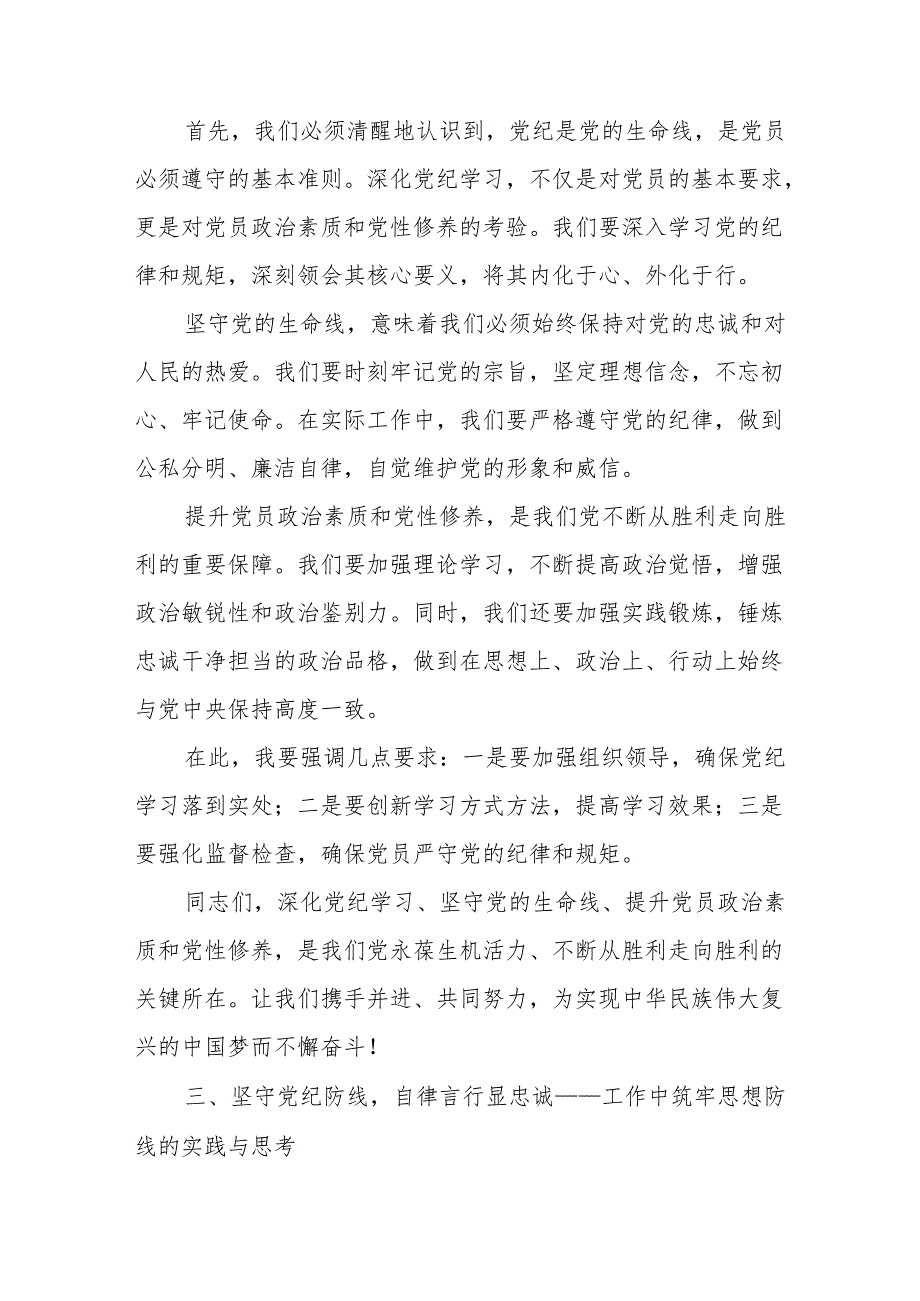 首先，我们必须清醒地认识到，党纪是党的生命线，是党员
必须遵守的基本准则。深化党纪学习，不仅是对党员的基本要求，
更是对党员政治素质和党性修养的考验。我们要深入学习党的纪
律和规矩，深刻领会其核心要义，将其内化于心、外化于行。
坚守党的生命线，意味着我们必须始终保持对党的忠诚和对
人民的热爱。我们要时刻牢记党的宗旨，坚定理想信念，不忘初
心、牢记使命。在实际工作中，我们要严格遵守党的纪律，做到
公私分明、廉洁自律，自觉维护党的形象和威信。
提升党员政治素质和党性修养，是我们党不断从胜利走向胜
利的重要保障。我们要加强理论学习，不断提高政治觉悟，增强
政治敏锐性和政治鉴别力。同时，我们还要加强实践锻炼，锤炼
忠诚干净担当的政治品格，做到在思想上、政治上、行动上始终
与党中央保持高度一致。
在此，我要强调几点要求：一是要加强组织领导，确保党纪
学习落到实处；二是要创新学习方式方法，提高学习效果；三是
要强化监督检查，确保党员严守党的纪律和规矩。
同志们，深化党纪学习、坚守党的生命线、提升党员政治素
质和党性修养，是我们党永葆生机活力、不断从胜利走向胜利的
关键所在。让我们携手并进、共同努力，为实现中华民族伟大复
兴的中国梦而不懈奋斗！
三、坚守党纪防线，自律言行显忠诚——工作中筑牢思想防
线的实践与思考